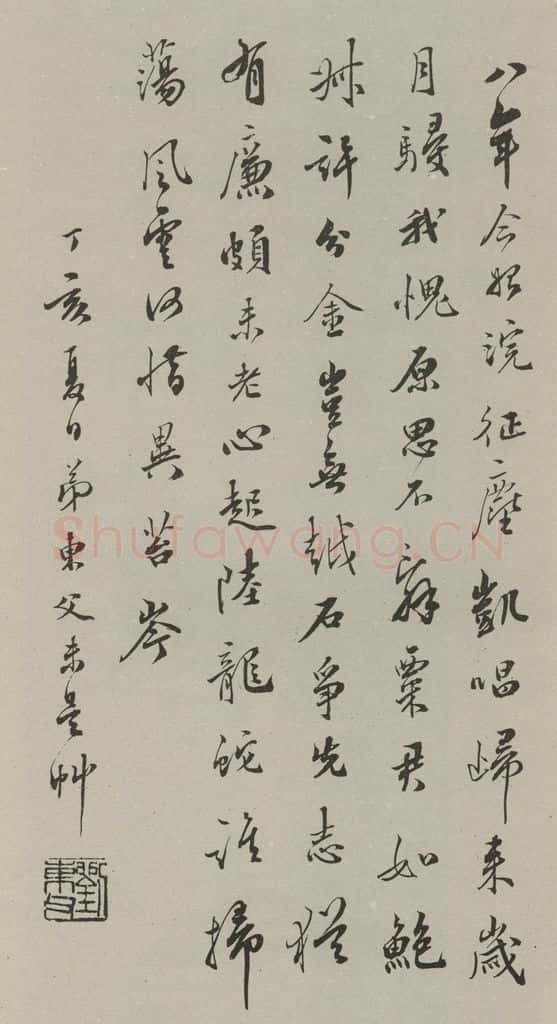 八年今始浣征塵凱唱歸來歲
月駸我愧原思不辭粟君如鮑
叔許分金豈無越石爭先志猶
有廉頗未老心起陸龍蛇誰掃
蕩風雲何惜異苔岑
丁亥夏日弟東父未是艸
劉東父
Shufawang.CN